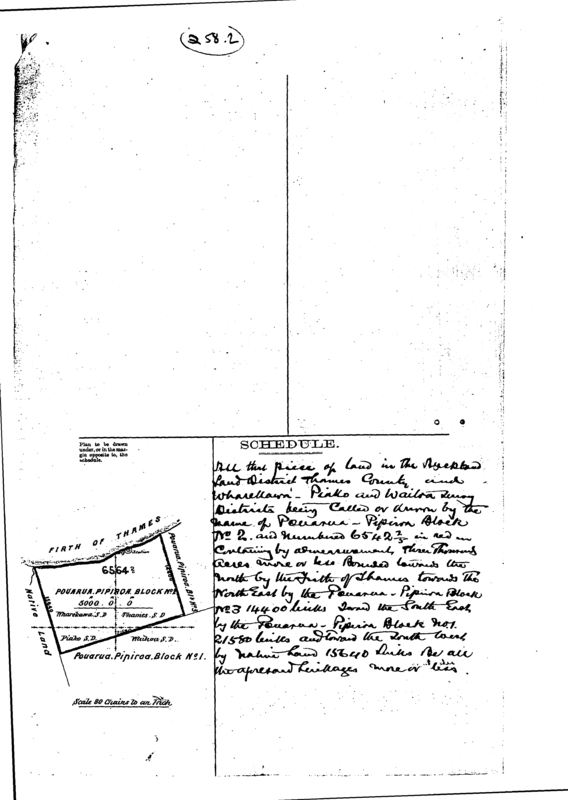 258.2
Plan to be drawn
under, or in the mar-
gin opposite to, the
schedule.
SCHEDULE.
All that piece of land in the Auckland
Land District Thames County and
Wharekawa - Piako and Waihou Survey
Districts being Called or known by the
name of Pouarua - Pipiroa Block
No 2. and numbered 6542 in red in
Containing by admeasurement, Three Thousand
acres more or less Bounded towards the
North by the Firth of Thames towards the
North East by the Pouarua - Pipiroa Block
No 3 14400 links Toward the South East
by the Pouarua - Pipiroa Block No 1.
21580 links and toward the South West
by Native Land 15640 Links Be all
the aforesaid Linkages more or less.
FIRTH OF THAMES
6564
POUARUA. PIPIROA. BLOCK No 2
3000. 0. 0
Wharekawa. S.D Thames. S.D
Piako S.D. Waihou S.D.
Native Land
Pouarua. Pipiroa. Blk No 3
Pouarua. Pipiroa. Block No 1.
Scale 80 Chains to an Inch